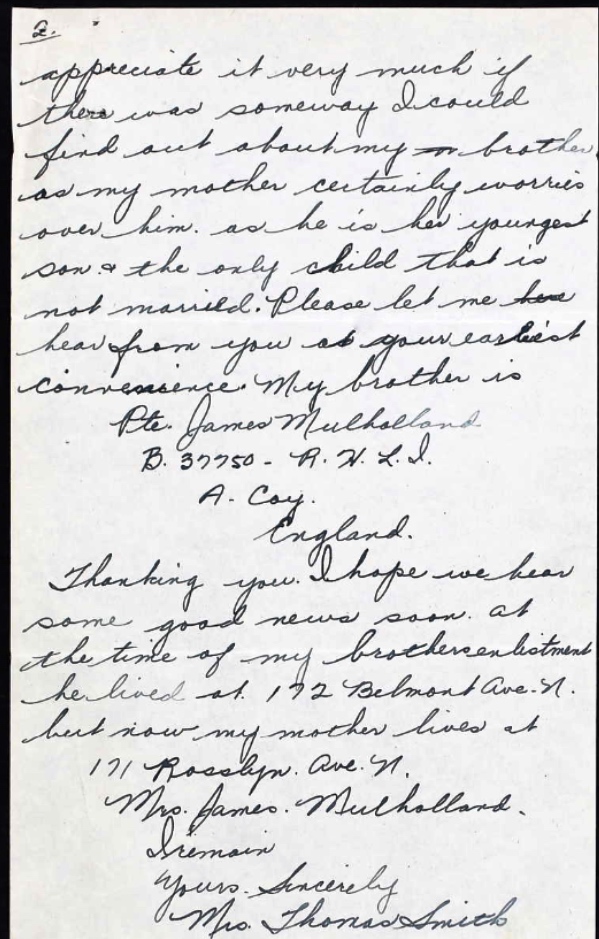 2.
appreciate it very much if
there was someway I could
find out about my brother
as my mother certainly worries
over him. as he is her youngest
son & the only child that is
not married. Please let me
hear from you at your earliest
convenience. My brother is
Pte. James Mulholland
B. 37750 - R. H. L. I.
A. Coy.
England.
Thanking you. I hope we hear
some good news soon. at
the time of my brothers enlistment
he lived at. 172 Belmont Ave. N.
but now my mother lives at
171 Rosslyn. Ave. N.
Mrs. James. Mulholland.
I remain
Yours. Sincerely
Mrs. Thomas Smith